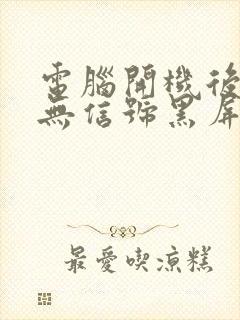 電腦開機後
無信號黑屏
最愛喫涼糕